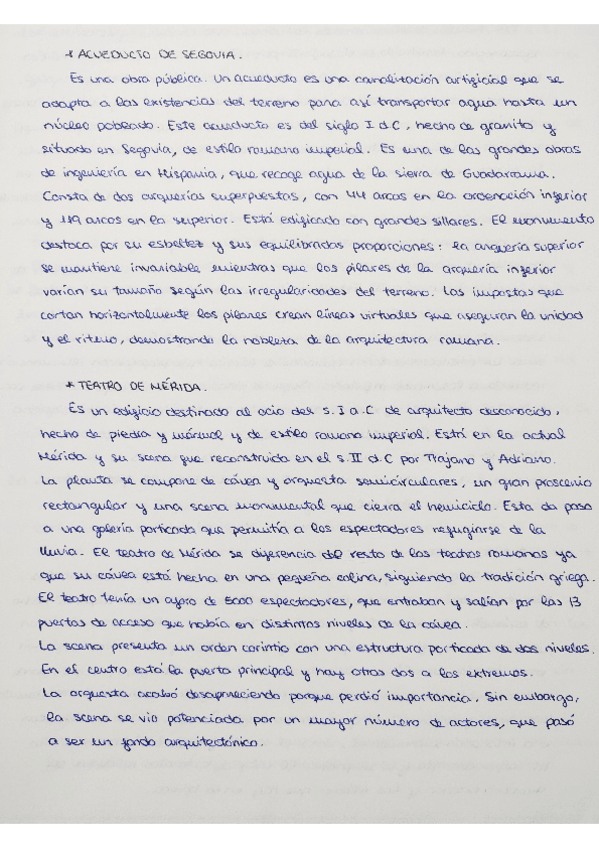 * ACUEDUCTO DE SEGOVIA.
Es una obra pública. Un acueducto es una canalización artificial que se
adapta a las existencias del terreno para así transportar agua hasta un
núcleo poblado. Este acueducto es del siglo I d.C, hecho de granito y
situado en Segovia, de estilo romano imperial. Es una de las grandes obras
de ingeniería en Hispania, que recoge agua de la sierra de Guadarrama.
Consta de dos arquerías superpuestas, con 44 arcos en la ordenación inferior
y 119 arcos en la superior. Está edificado con grandes sillares. El monumento
destaca por su esbeltez y sus equilibradas proporciones: la arquería superior
se mantiene invariable mientras que los pilares de la arquería inferior
varían su tamaño según las irregularidades del terreno. Las impostas que
cortan horizontalmente los pilares crean líneas virtuales que aseguran la unidad
y el ritmo, demostrando la nobleza de la arquitectura romana.
* TEATRO DE MÉRIDA.
Es un edificio destinado al ocio del s. I a.C de arquitecto desconocido,
hecho de piedra y mármol y de estilo romano imperial. Está en la actual
Mérida y su scena fue reconstruida en el s. II d.C por Trajano y Adriano.
La planta se compone de cávea y orquesta semicirculares, un gran proscenio
rectangular y una scena monumental que cierra el hemiciclo. Esta da paso
a una galería porticada que permitía a los espectadores refugiarse de la
lluvia. El teatro de Mérida se diferencia del resto de los teatros romanos ya
que su cávea está hecha en una pequeña colina, siguiendo la tradición griega.
El teatro tenía un aforo de 5000 espectadores, que entraban y salían por las 13
puertas de acceso que había en distintos niveles de la cávea.
La scena presenta un orden corintio con una estructura porticada de dos niveles.
En el centro está la puerta principal y hay otras dos a los extremos.
La orquesta acabó desapareciendo porque perdió importancia. Sin embargo,
la scena se vio potenciada por un mayor número de actores, que pasó
a ser un fondo arquitectónico.